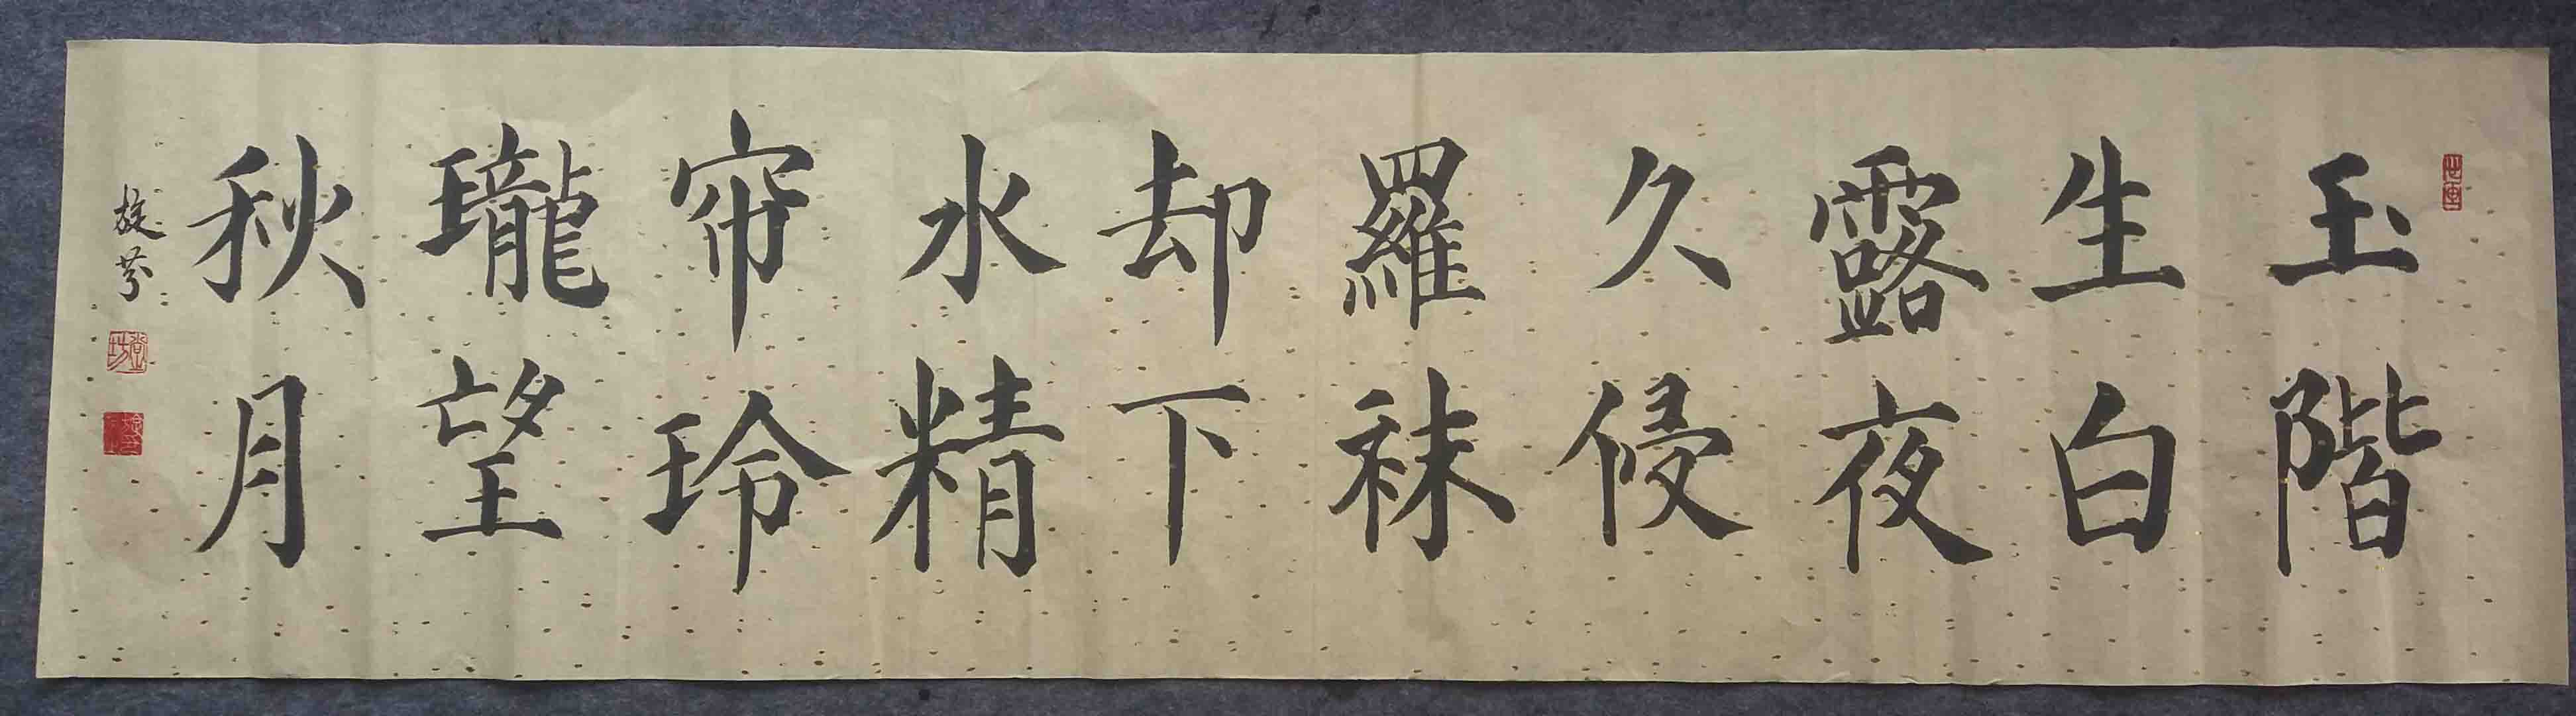 玉階
生白
露夜
久侵
羅袜
却下
水精
帘玲
瓏望
秋月
旋芬